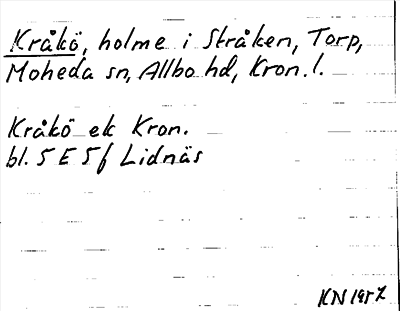 Kråkö, holme i Stråken, Torp,
Moheda sn, Allbo hd, Kron. l.
Kråkö ek Kron.
bl. 5 E 5f Lidnäs
KN